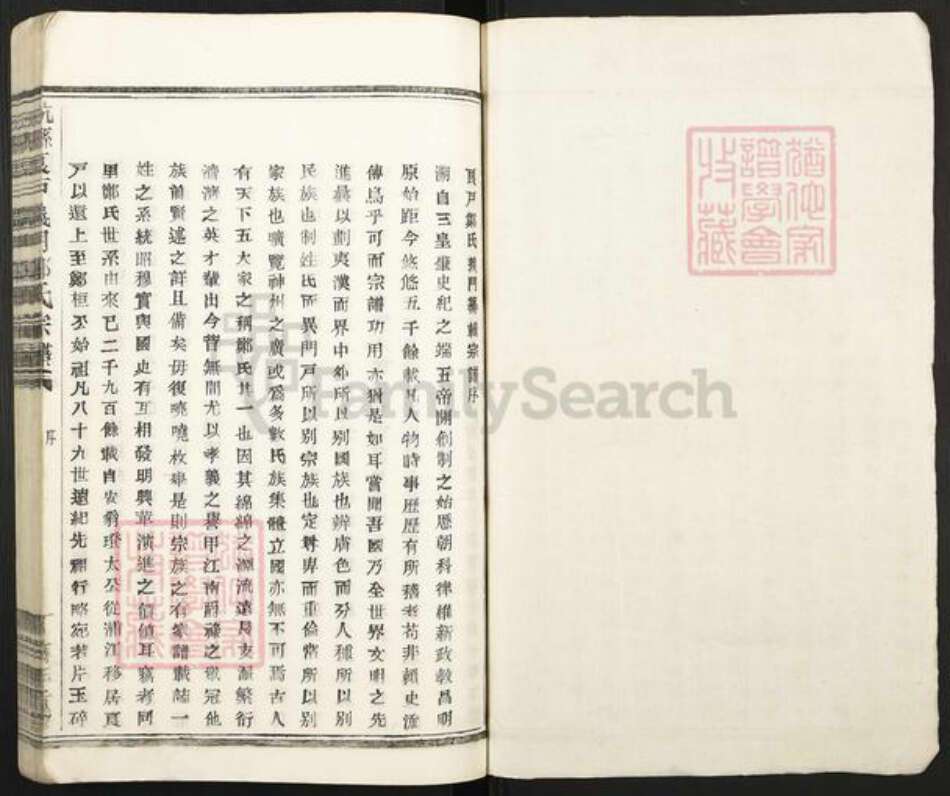 猶他家
譜學會
收藏
戶鄭氏義門
溯自三皇肇史紀之端五帝開創制之始歷朝科律維新政教昌明
原始距今悠悠五千餘載其人物時事歷歷有所稽考苟非賴史
傳烏乎可而宗譜功用亦猶是如耳嘗聞吾國乃全世界文明之先
進最以劃夷漢而界中外所以別國族也辨膚色而分人種所以別
民族也制姓氏而異門戸所以別宗族也定尊卑而重倫常所以別
家族也曠覽神州之廣或爲多數氏族集體立國亦無不可焉古人
有天下五大家之稱鄭氏其一也因其綿綿之源流遠長支派繁衍
濟濟之英才輩出今昔無間尤以孝義之譽甲江南爵祿之 冠他
族前賢述之詳且備矣毋復曉曉枚舉是則宗族之有家譜載 一
姓之系統昭穆實與國史有互相發明興革演進之價値耳竊考同
里鄭氏世系由來已二千九百餘載自安 太公從浦江移居
戸以還上至鄭桓公始祖凡八十九世遠紀先 行略宛若片玉碎
鄭氏宗譜
序
FamilySearch